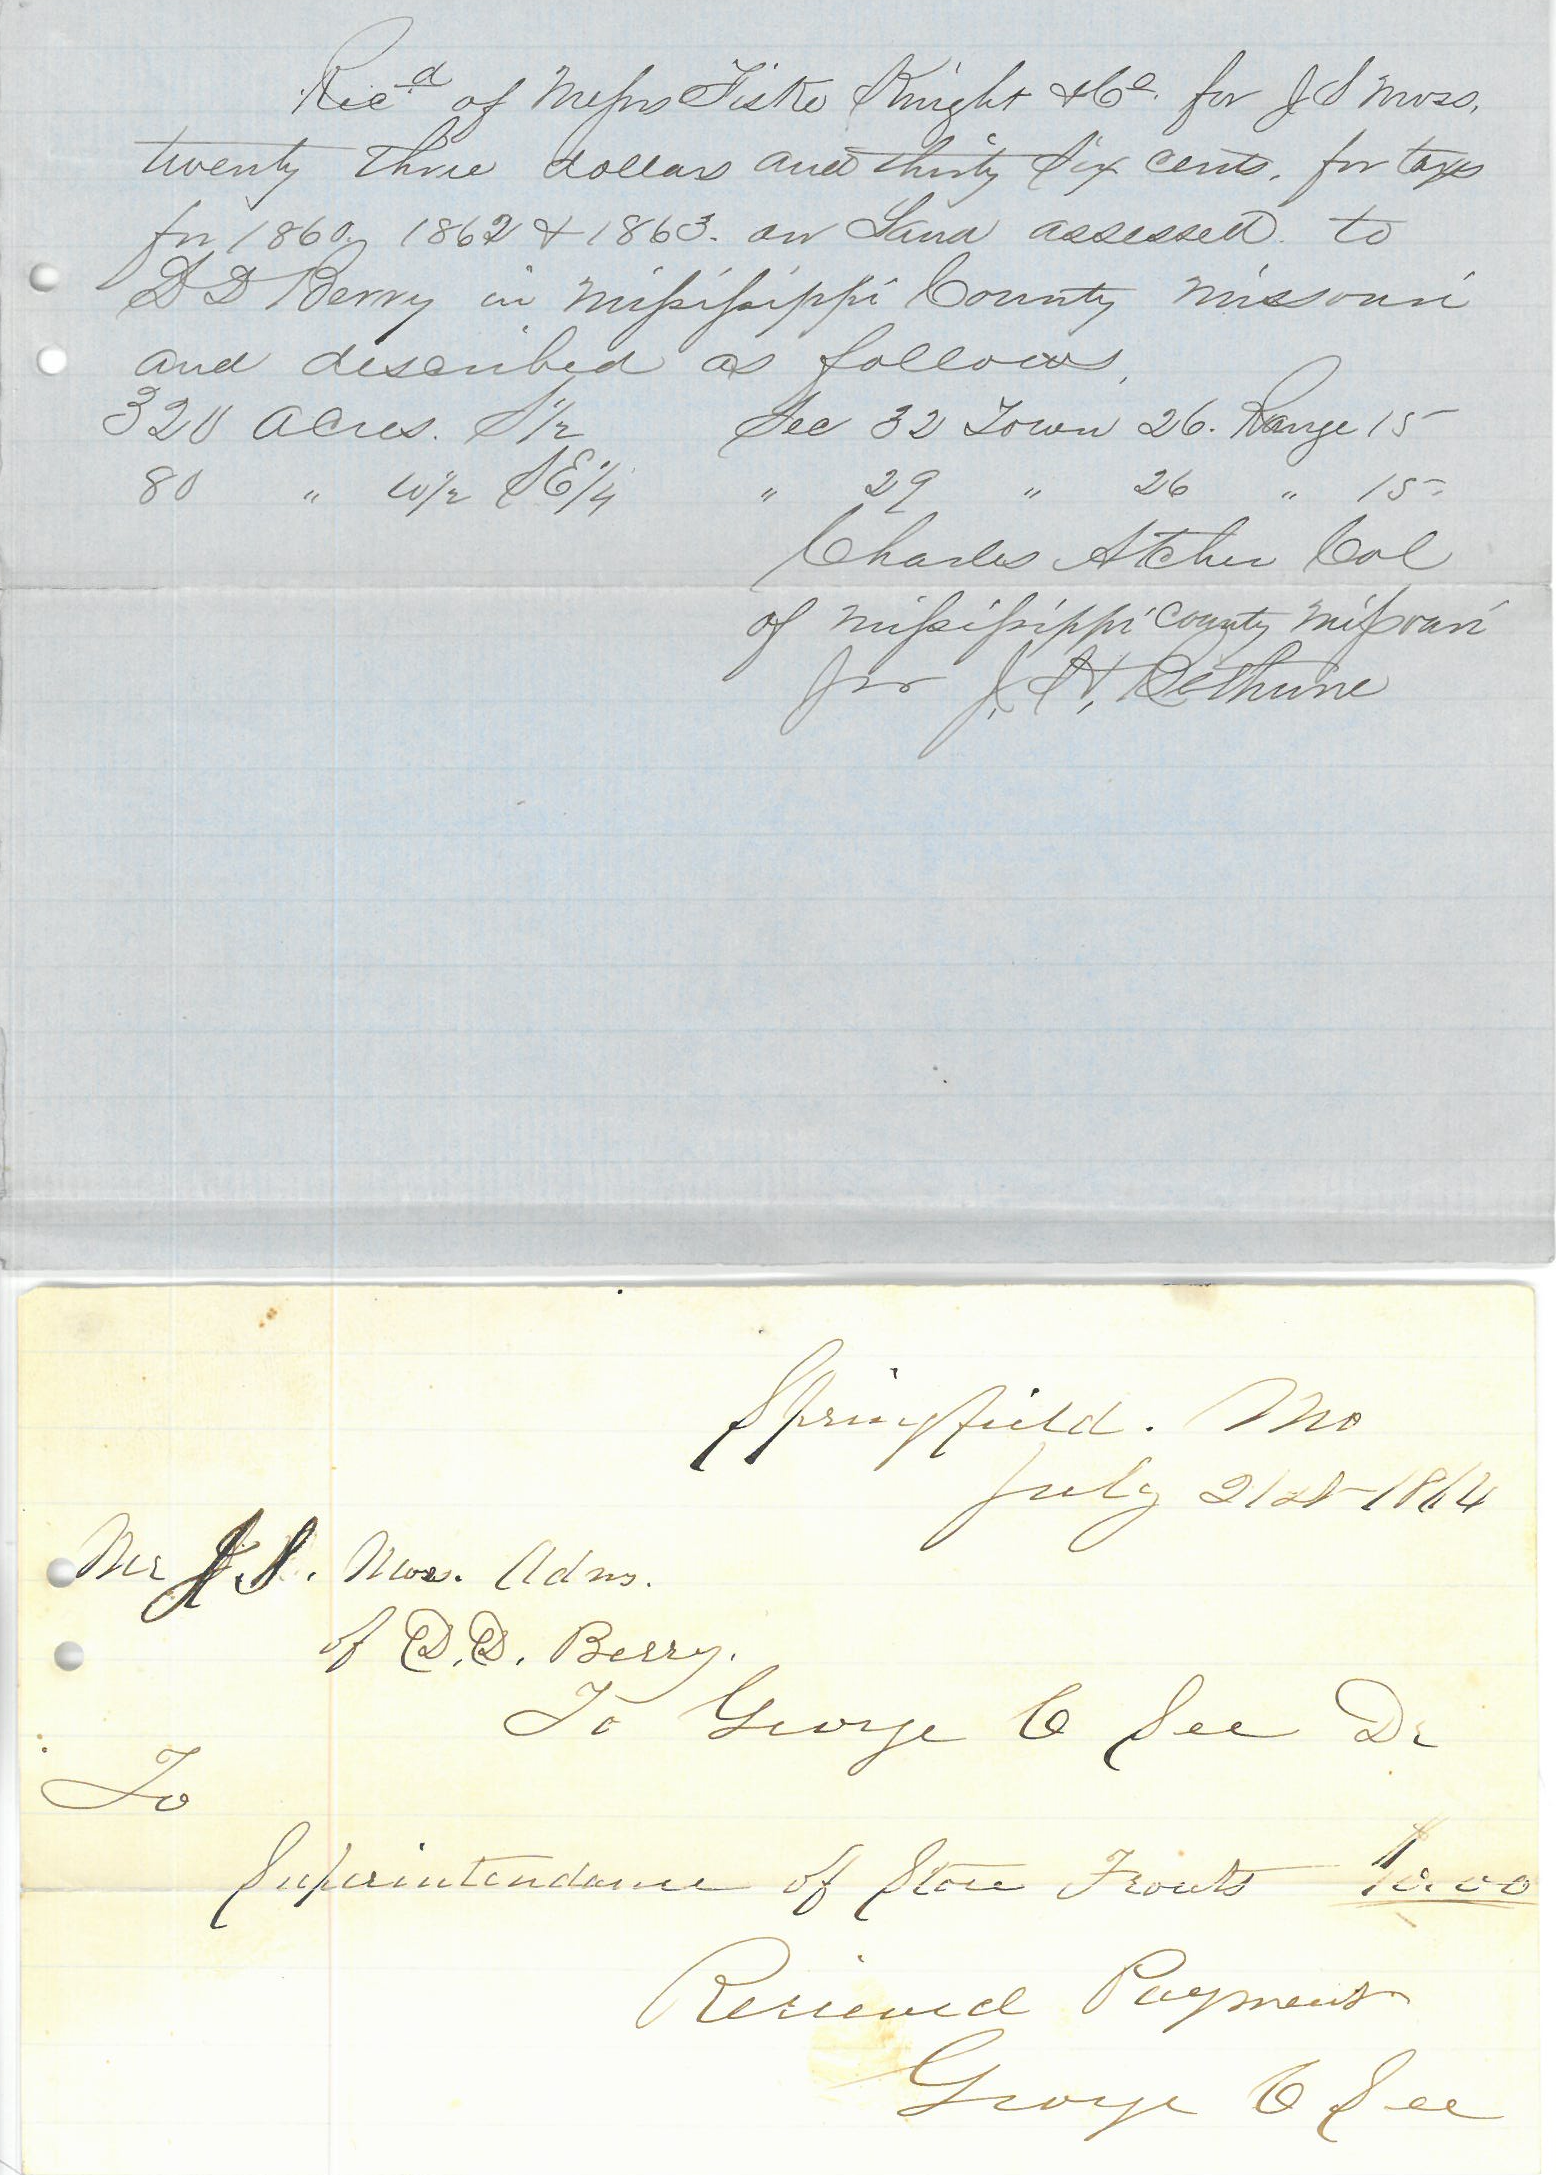 Recd of Messrs Fiske Knight & Co. for J S Moss.
twenty three dollars and thirty Six cents. for taxes
for 1860, 1862 & 1863. on Land assessed to
D D Berry in Mississippi County Missouri
and described as follows,
320 acres. S 1/2 Sec 32 Town 26. Range 15
80 " W 1/2 SE 1/4 " 29 " 26 " 15
Charles Atcher Col
of Mississippi County Missouri
per J. H. Bethune
Springfield. Mo
July 21st 1864
Mr J. S. Moss. Admr.
of D. D. Berry.
To George C See Dr
To
Superintendance of Store Fronts $10.00
Recieved Payment
George C See